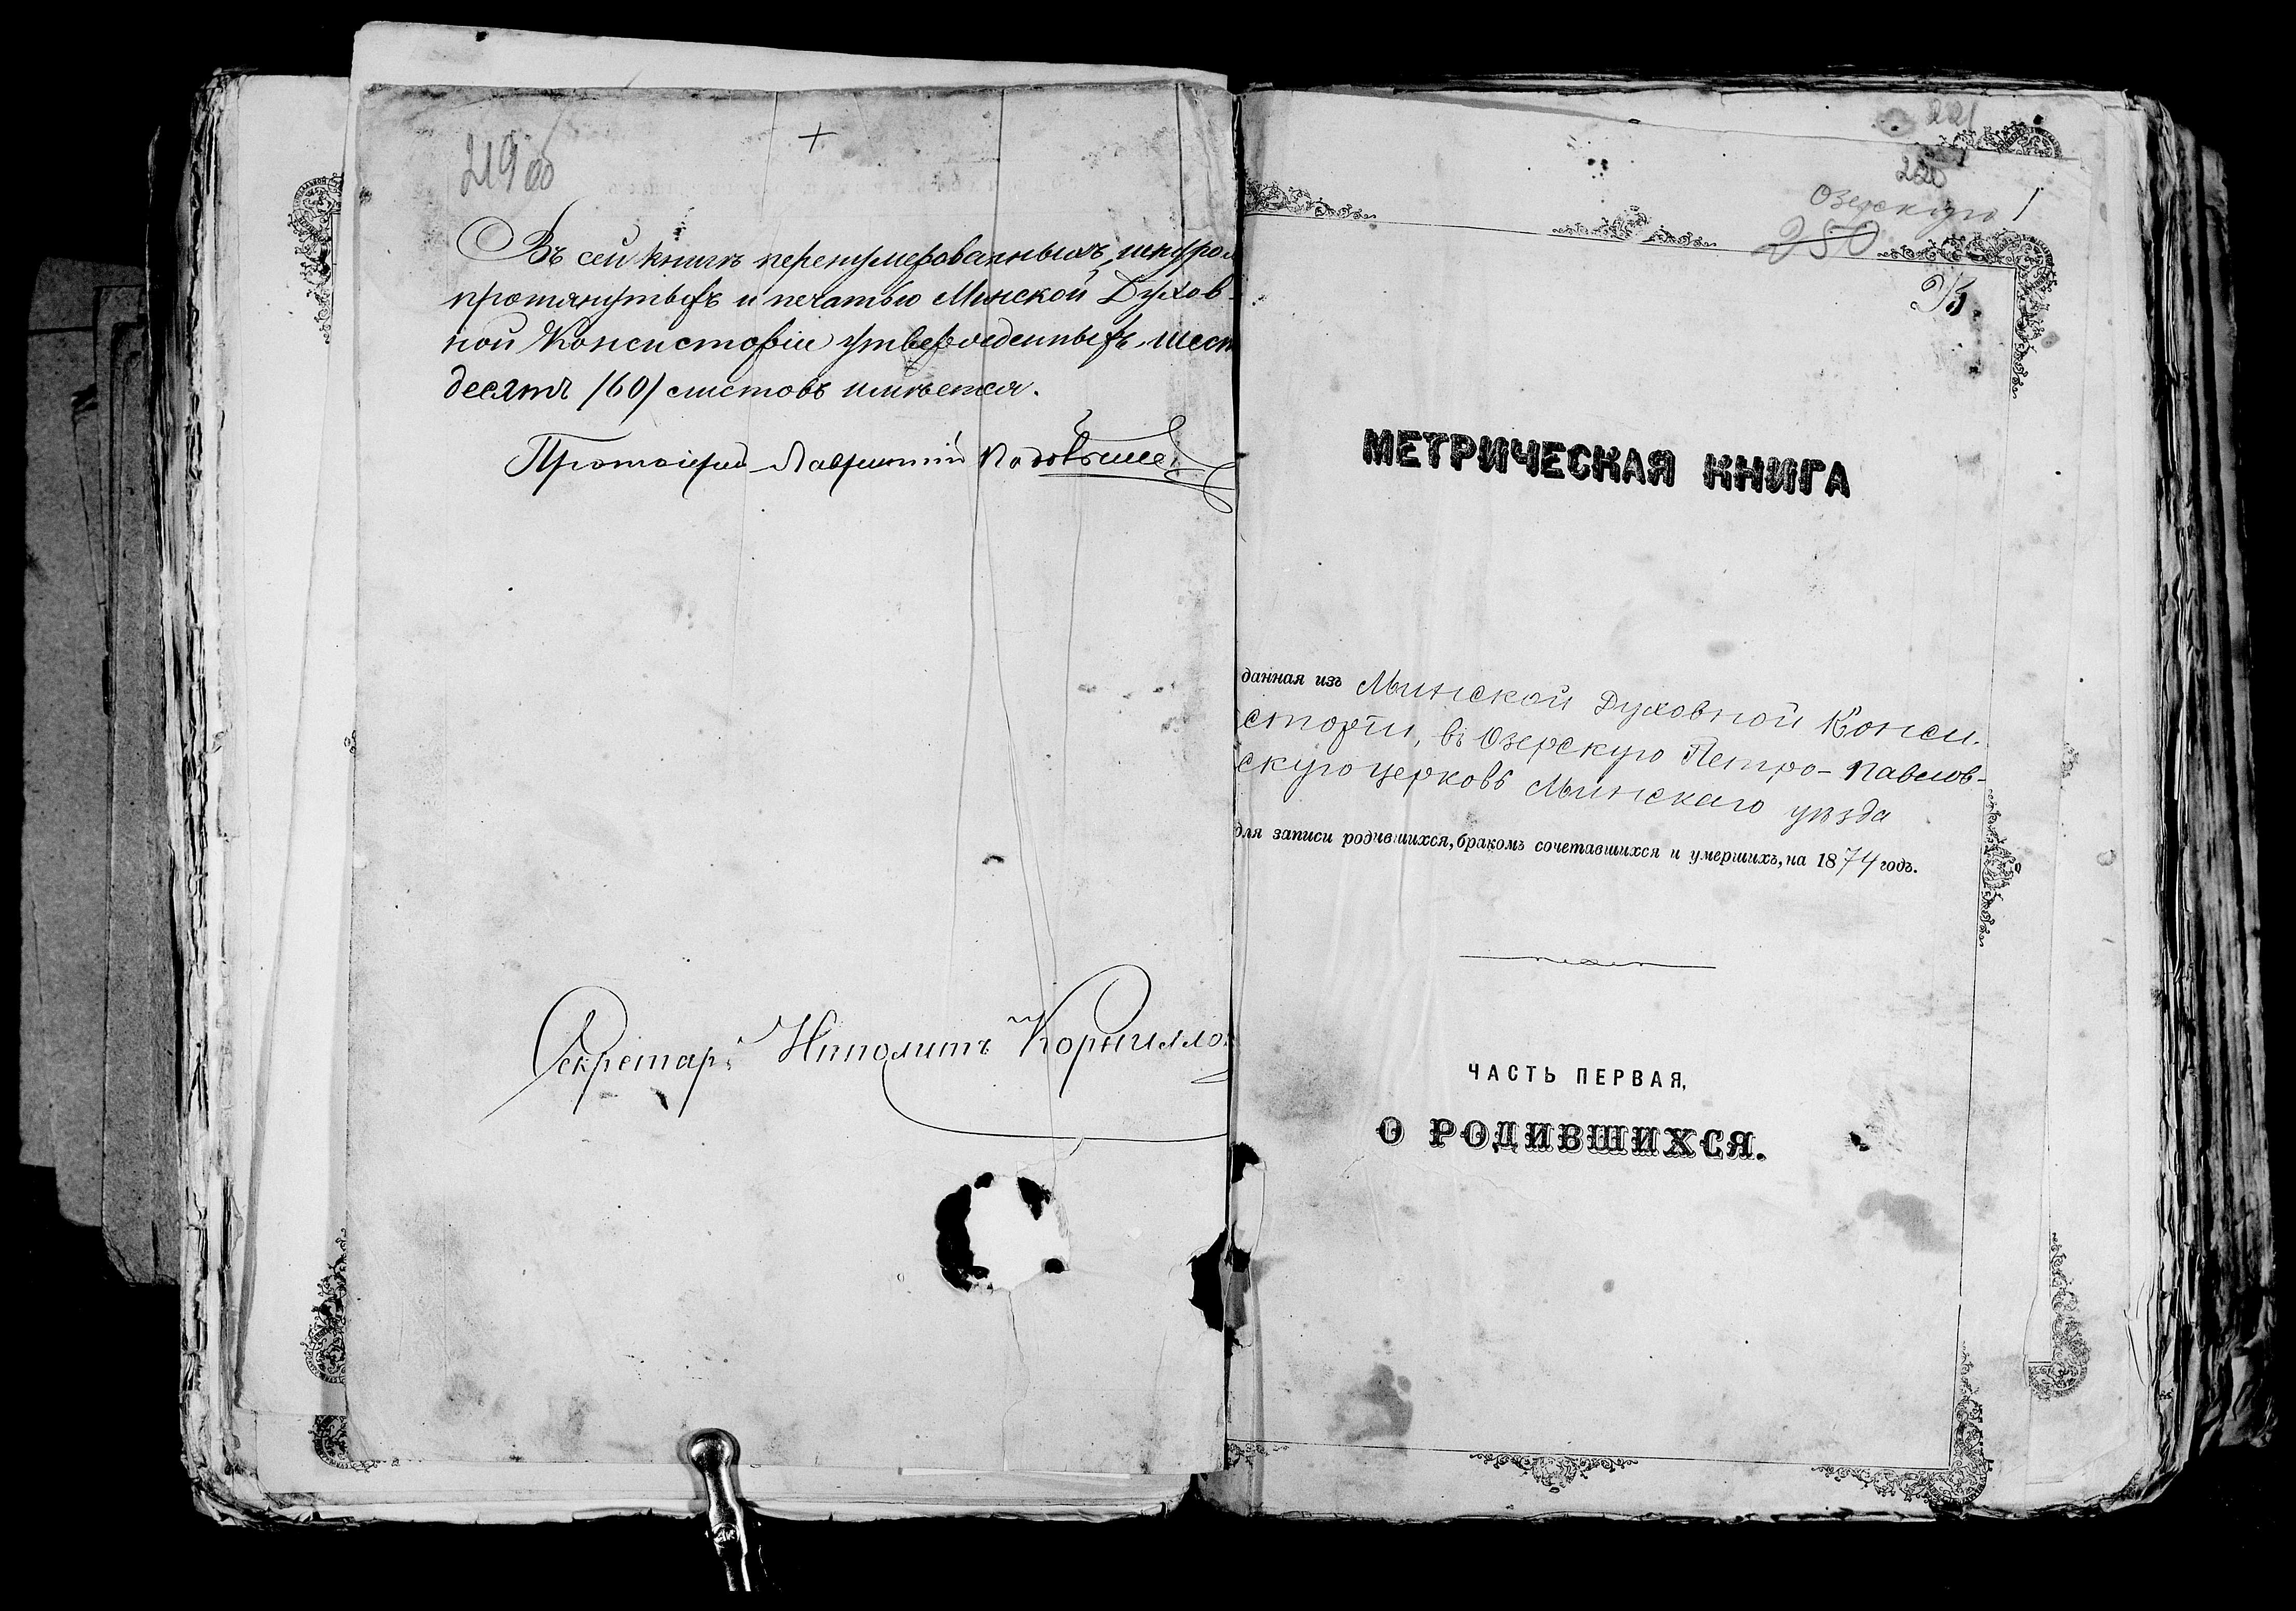 219 об
Въ сей книгѣ перенумерованныхъ, шнуром
протянутыхъ и печатью Минской Духов-
ной Консисторіи утвержденныхъ шест
десятъ /60/ листовъ имѣется.
Протоіерей
Секретарь Ипполитъ Корнилло
221
Озерскую 1
250
МЕТРИЧЕСКАЯ КНИГА
данная изъ Минской Духовной Конси-
сторіи, въ Озерскую Петро-Павлов-
скую церковь Минскаго уѣзда
для записи родившихся, бракомъ сочетавшихся и умершихъ, на 1874 годъ.
ЧАСТЬ ПЕРВАЯ,
О РОДИВШИХСЯ.